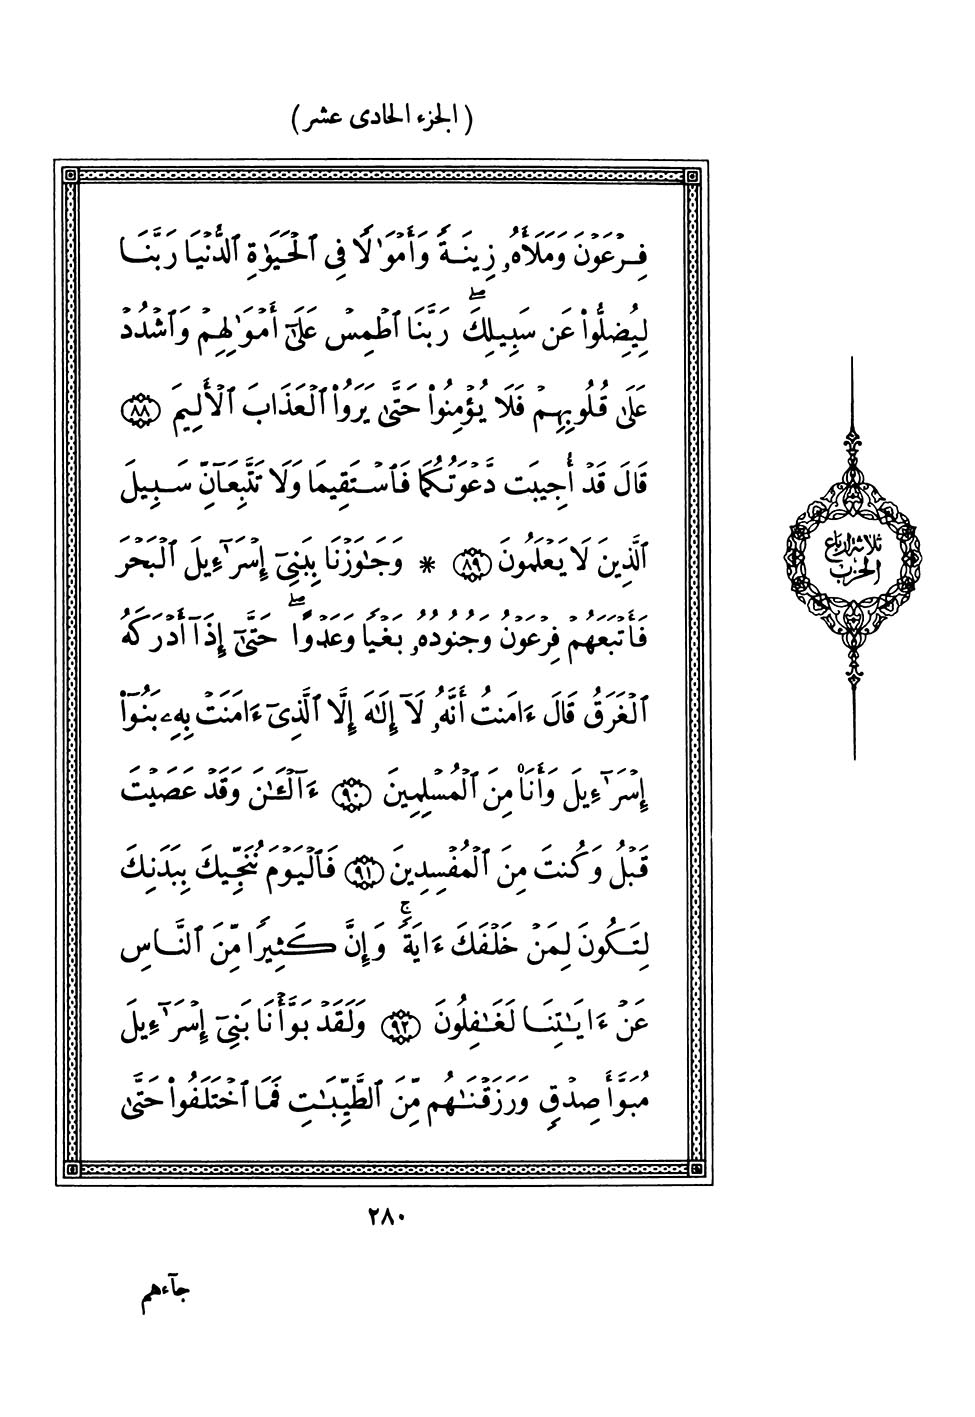 (الجزء الحادى عشر)
فِرْعَوْنَ وَمَلَأَهُۥ زِينَةً وَأَمْوَٰلًا فِى ٱلْحَيَوٰةِ ٱلدُّنْيَا رَبَّنَا
لِيُضِلُّوا۟ عَن سَبِيلِكَ ۖ رَبَّنَا ٱطْمِسْ عَلَىٰٓ أَمْوَٰلِهِمْ وَٱشْدُدْ
عَلَىٰ قُلُوبِهِمْ فَلَا يُؤْمِنُوا۟ حَتَّىٰ يَرَوُا۟ ٱلْعَذَابَ ٱلْأَلِيمَ ٨٨
قَالَ قَدْ أُجِيبَت دَّعْوَتُكُمَا فَٱسْتَقِيمَا وَلَا تَتَّبِعَآنِّ سَبِيلَ
ٱلَّذِينَ لَا يَعْلَمُونَ ٨٩ * وَجَٰوَزْنَا بِبَنِىٓ إِسْرَٰٓءِيلَ ٱلْبَحْرَ
فَأَتْبَعَهُمْ فِرْعَوْنُ وَجُنُودُهُۥ بَغْيًا وَعَدْوًا ۖ حَتَّىٰٓ إِذَآ أَدْرَكَهُ
ٱلْغَرَقُ قَالَ ءَامَنتُ أَنَّهُۥ لَآ إِلَٰهَ إِلَّا ٱلَّذِىٓ ءَامَنَتْ بِهِۦ بَنُوٓا۟
إِسْرَٰٓءِيلَ وَأَنَا۠ مِنَ ٱلْمُسْلِمِينَ ٩٠ ءَآلْـَٰٔنَ وَقَدْ عَصَيْتَ
قَبْلُ وَكُنتَ مِنَ ٱلْمُفْسِدِينَ ٩١ فَٱلْيَوْمَ نُنَجِّيكَ بِبَدَنِكَ
لِتَكُونَ لِمَنْ خَلْفَكَ ءَايَةً ۚ وَإِنَّ كَثِيرًا مِّنَ ٱلنَّاسِ
عَنْ ءَايَٰتِنَا لَغَٰفِلُونَ ٩٢ وَلَقَدْ بَوَّأْنَا بَنِىٓ إِسْرَٰٓءِيلَ
مُبَوَّأَ صِدْقٍ وَرَزَقْنَٰهُم مِّنَ ٱلطَّيِّبَٰتِ فَمَا ٱخْتَلَفُوا۟ حَتَّىٰ
ثلاثة ارباع
الحزب
٢٨٠
جآءهم